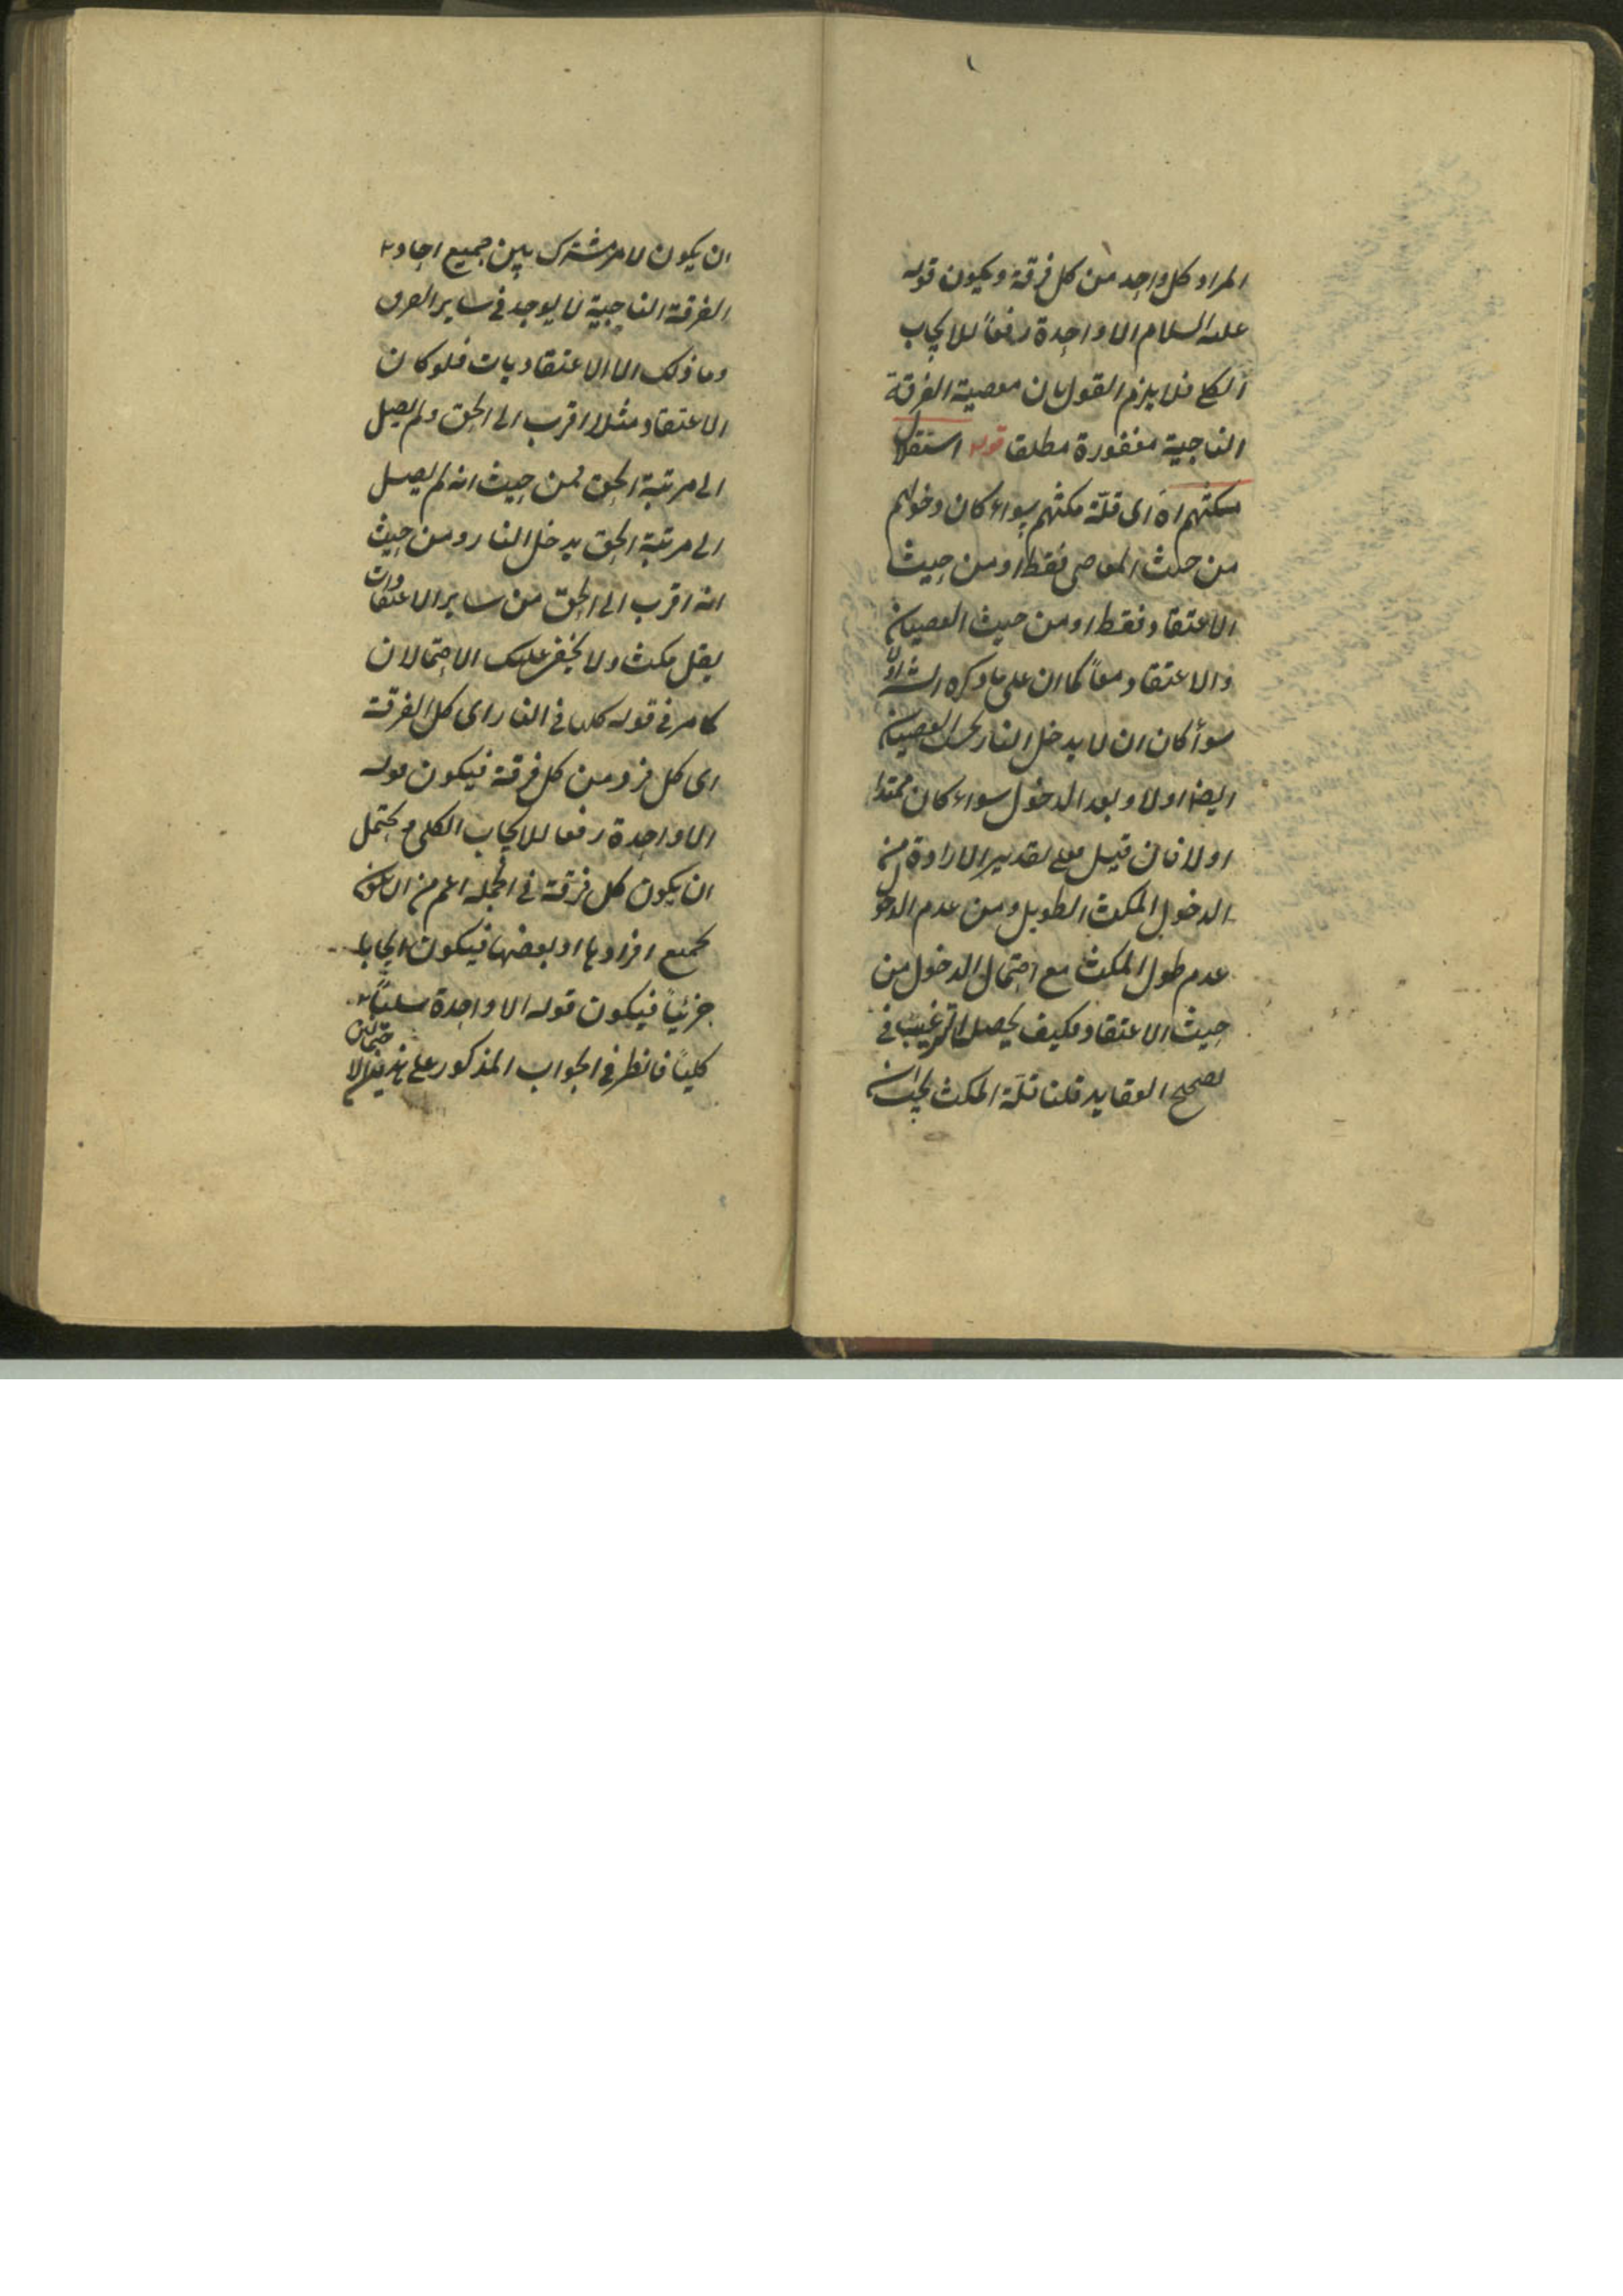 المراد كل واحد من كل فرقة ويكون قوله
عليه السلام الا واحدة رفعاً للايجاب
الكلي فلا يلزم القول بان معصية الفرقة
الناجية مغفورة مطلقا قوله استقلال
مكثهم اه اى قلّة مكثهم سواء كان دخولهم
من حيث المعاصى فقط او من حيث
الاعتقاد فقط او من حيث العصيان
والاعتقاد معاً كما ان على ما ذكره الش اولا
سوأ كان ان لا يدخل النار بحسب العصيان
ايضا اولا وبعد الدخول سواء كان ممتدا
اولا فان قيل فعلى تقدير الارادة من
الدخول المكث الطويل ومن عدم الدخول
عدم طول المكث مع احتمال الدخول من
حيث الاعتقاد فكيف يحصل الترغيب في
تصحيح العقايد قلنا قلّة المكث يجب ان
ان يكون لامر مشترك بين جميع احاد
الفرقة الناجية لا يوجد في ساير الفرق
وما ذلك الا الاعتقاديات فلو كان
الاعتقاد مثلا اقرب الى الحق ولم يصل
الى مرتبة الحق فمن حيث انه لم يصل
الى مرتبة الحق يدخل النار ومن حيث
انه اقرب الى الحق من ساير الاعتقادات
يقل مكث ولا يخفى عليك الاحتمالان
كما مر في قوله كلها في النار اى كل الفرقة
اى كل فرد من كل فرقة فيكون قوله
الا واحدة رفعا للايجاب الكلى ويحتمل
ان يكون كل فرقة في الجمله اعم من ان يكون
بجميع افرادها او بعضها فيكون ايجابا
جزئياً فيكون قوله الا واحدة سلباً
كلياً فانظر في الجواب المذكور على هذين الاحتمالين